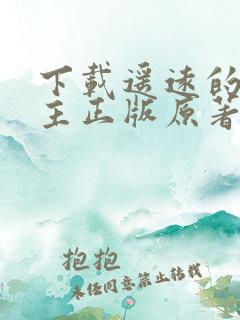 下载遥远的
主正版原著
抱抱
未经同意禁止转载